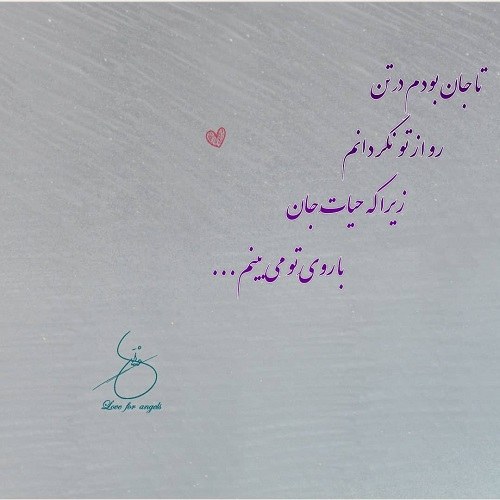 تا جان بودم در تن
رو از تو نگردانم
زیرا که حیات جان
با روی تو می بینم ...
Love for angels